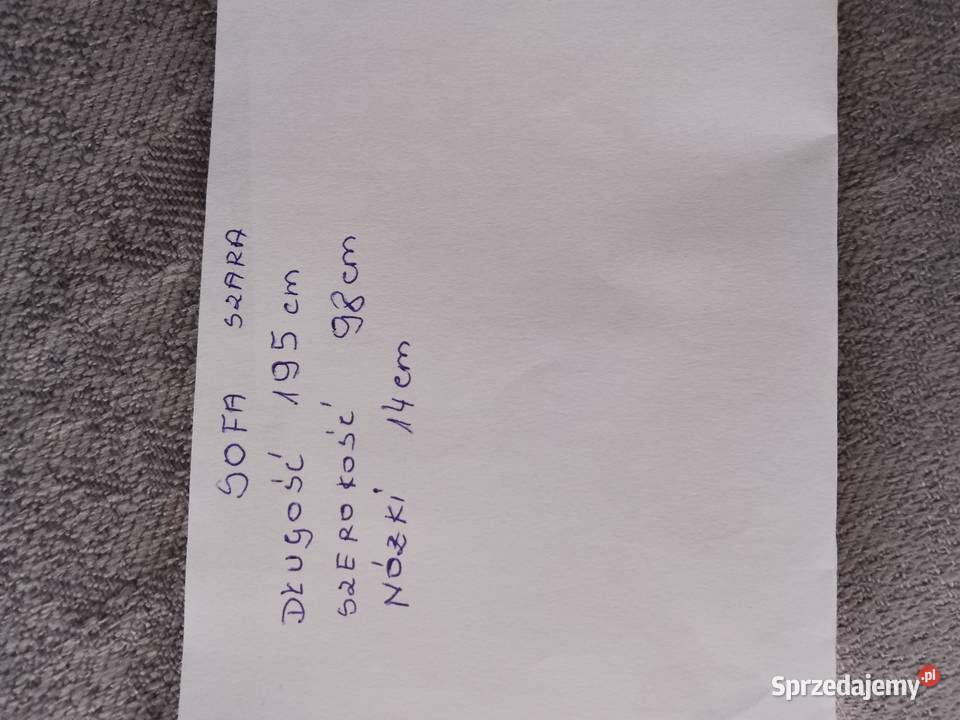 SOFA SZARA
DŁUGOŚĆ 195 cm
SZEROKOŚĆ 98 cm
NÓZKI 14 cm
Sprzedajemy.pl